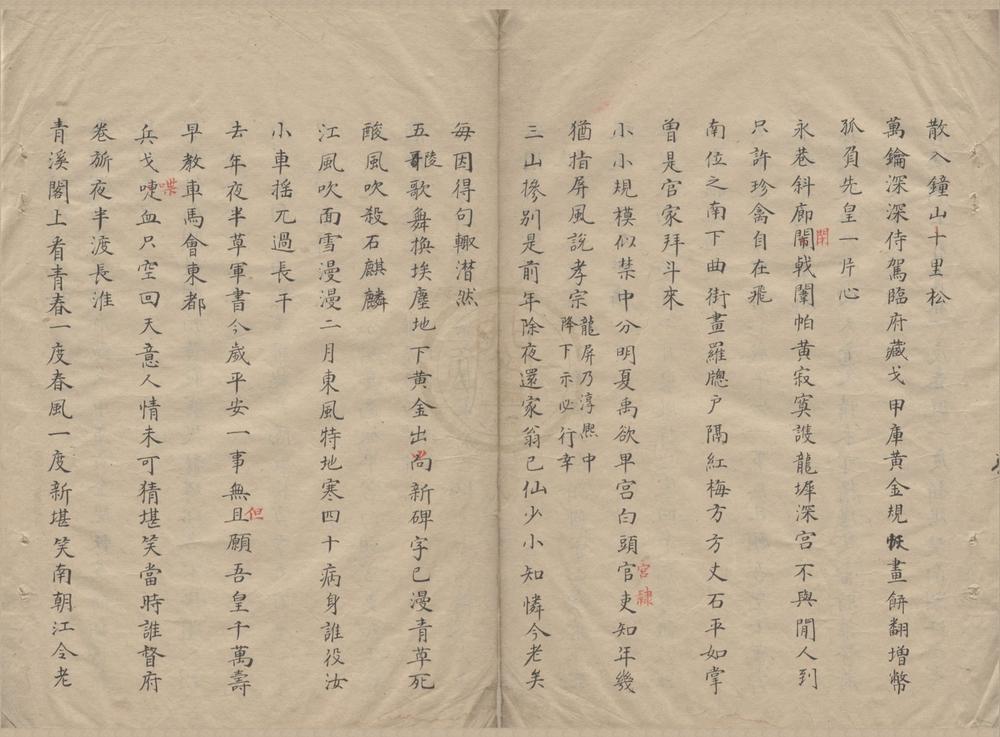 散入鐘山十里松
萬鑰深深侍駕臨府藏戈甲庫黃金規恢畫餅翻增幣
孤負先皇一片心
永巷斜廊閣戟闌帕黃寂寞護龍墀深宮不與閒人到
閉
只許珍禽自在飛
南位之南下曲街畫羅牕戶隔紅梅方方丈石平如掌
曽是官家拜斗來
小小規模似禁中分明夏禹欲卑宫白頭官吏知年幾
宮隸
猶指屏風說孝宗龍屏乃淳熈中
降下示必行幸
三山摻别是前年除夜還家翁已仙少小知憐今老矣
每因得句輙潜然
五哥歌舞換埃塵地下黄金出尚新碑字已漫青草死
陵
酸風吹殺石麒麟
江風吹面雪漫漫二月東風特地寒四十病身誰役汝
小車摇兀過長干
去年夜半草軍書今歲平安一事無且願吾皇千萬壽
但
早教車馬會東都
兵戈啑血只空回天意人情未可猜堪笑當時誰督府
喋
卷旂夜半渡長淮
青溪閣上看青春一度春風一度新堪笑南朝江令老